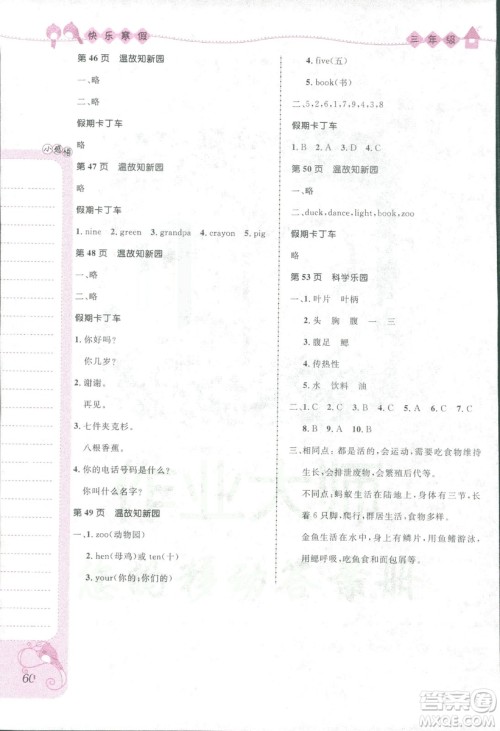 快乐寒假
三年级
小感悟
第46页 温故知新园
一、略
二、略
假期卡丁车
略
第47页 温故知新园
略
假期卡丁车
1. nine 2. green 3. grandpa 4. crayon 5. pig
第48页 温故知新园
一、略
二、略
假期卡丁车
1. 你好吗?
你几岁?
2. 谢谢。
再见。
3. 七件夹克杉。
八根香蕉。
4. 你的电话号码是什么?
你叫什么名字?
第49页 温故知新园
一、1. zoo(动物园)
2. hen(母鸡)或ten(十)
3. your(你的;你们的)
4. five(五)
5. book(书)
二、5,2,6,1,7,8,9,4
假期卡丁车
1. B 2. A 3. C 4. B 5. C
第50页 温故知新园
一、略
二、duck,dance,light,book,zoo
假期卡丁车
略
第53页 科学乐园
一、1. 叶片 叶柄
2. 头 胸 腹 一 三
3. 腹足 鳃
4. 传热性
5. 水 饮料 油
二、1. C 2. C 3. B 4. A 5. C 6. C
7. B 8. A 9. A 10. A
三、相同点:都是活的,会运动,要吃食物维持
生长,都排泄废物,会繁殖后代。
不同点:蚂蚁生活在陆地上,身体分三节,
长着6只脚,有触角,群居生活。
金鱼生活在水中,身上有鳞片,用鱼鳍游泳,
用鳃呼吸,吃鱼食和面包屑等。
60
作业大师
答案圈